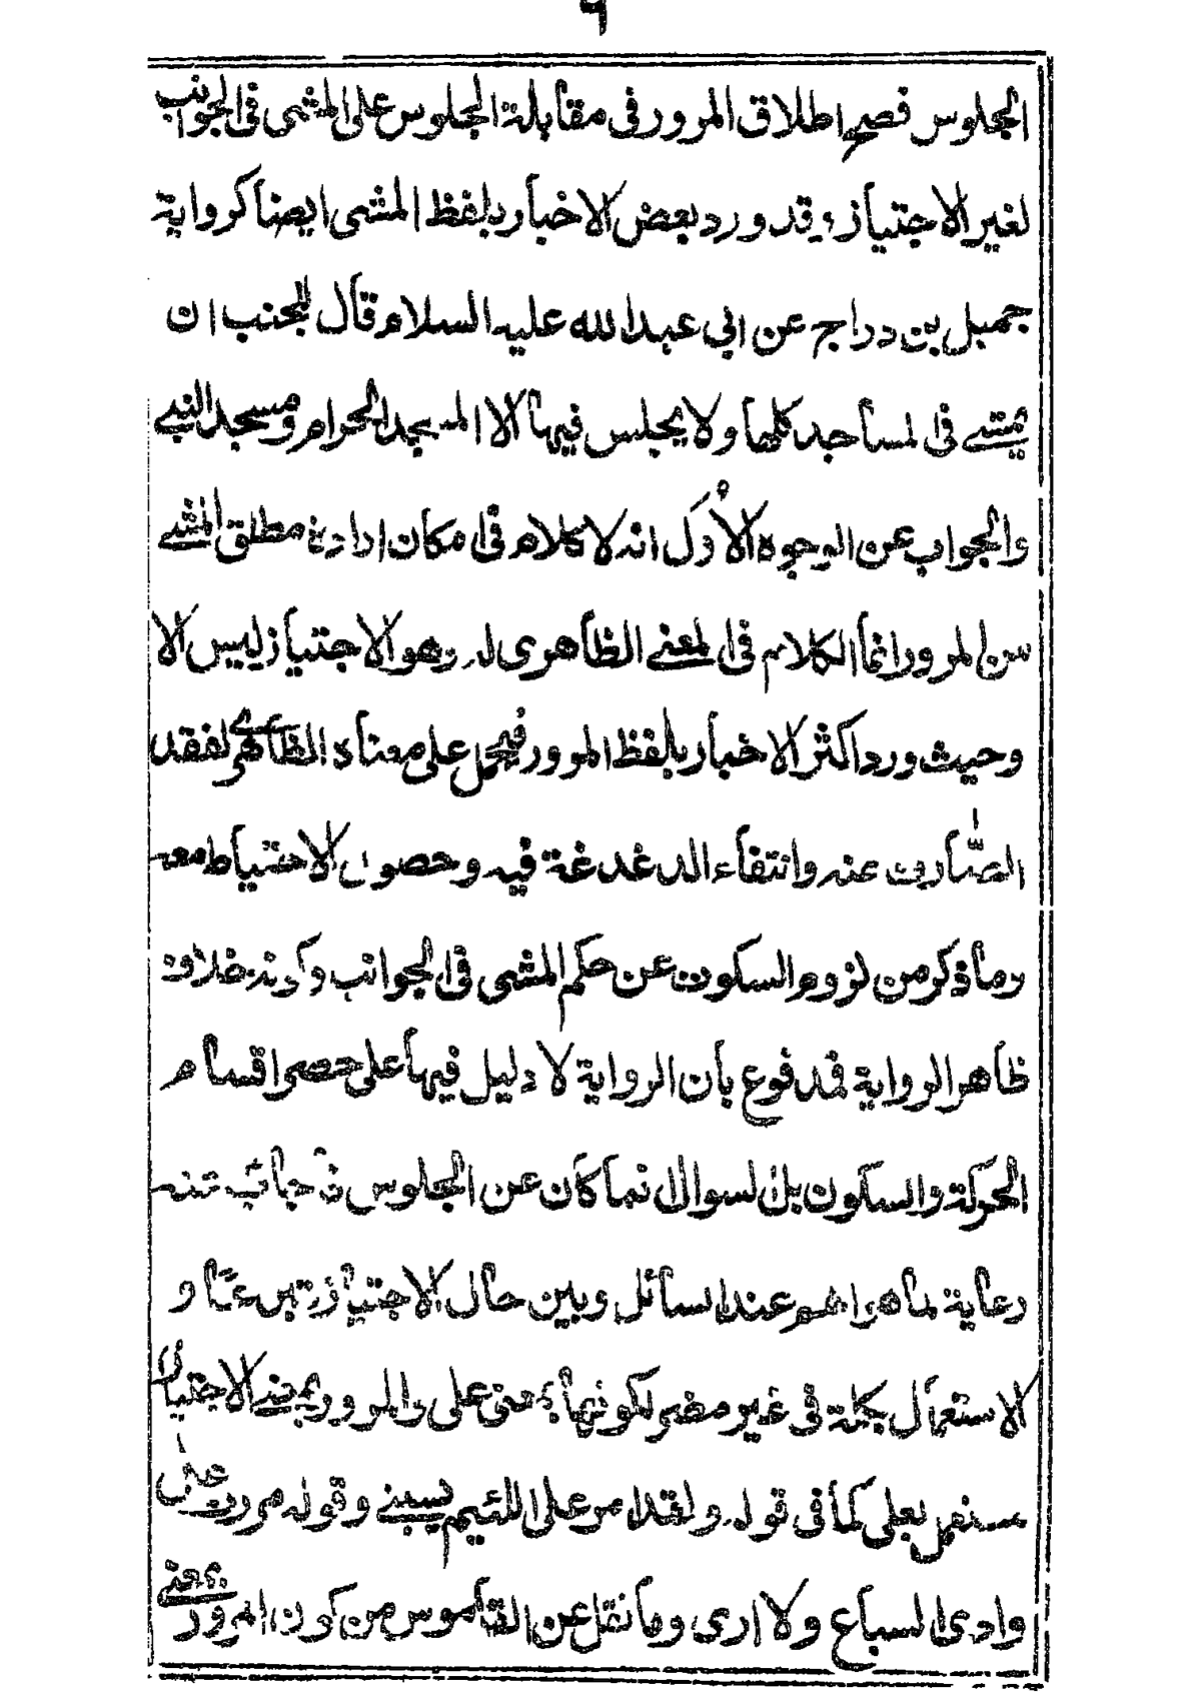 ٩
الجلوس فصح اطلاق المرور فى مقابلة الجلوس على المشى فى الجوانب
لغير الاجتياز وقد ورد بعض الاخبار بلفظ المشى ايضا كرواية
جميل بن دراج عن ابي عبد الله عليه السلام قال للجنب ان
يمشے فى المساجد كلها ولا يجلس فيها الا المسجد الحرام ومسجد النبے
والجواب عن الوجوه الأول انه لا كلام فى امكان ارادة مطلق المشے
من المرور انما الكلام فى المعنے الظاهرى له وهو الاجتياز ليس الا
وحيث ورد اكثر الاخبار بلفظ المرور فيحمل على معناه الظاهرى لفقد
الصارف عنه وانتفاء الدغدغة فيه وحصول الاحتياط معه
وما ذكر من لزوم السكوت عن حكم المشى فى الجوانب وكونه خلاف
ظاهر الرواية فمدفوع بان الرواية لا دليل فيها على حصر اقسام
الحركة والسكون بل السوال انما كان عن الجلوس فاجاب عنه
رعاية لما هو اهم عند السائل وبين حال الاجتياز تبرعا و
الاستعمال بكلمة فى غير مضر لكونها بمعنى على والمرور بمعنے الاجتياز
مستعمل بعلى كما فى قوله ولقد امر على اللئيم يسبنے وقوله مررت على
وادى السباع ولا ارى وما نقل عن القاموس من كون المرور بمعنے